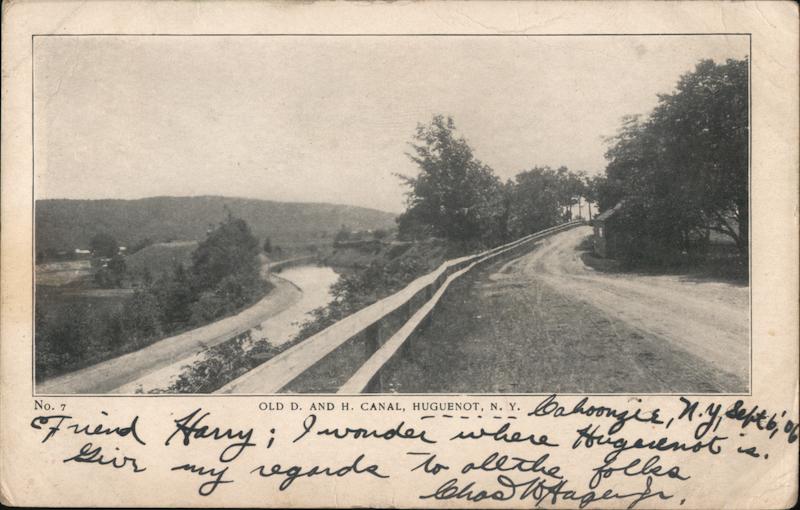 No. 7 OLD D. AND H. CANAL, HUGUENOT, N. Y. Cahoonzie, N.Y. Sept 6, '06
Friend Harry; I wonder where Huguenot is.
Give my regards to all the folks
Chas W Hager Jr.